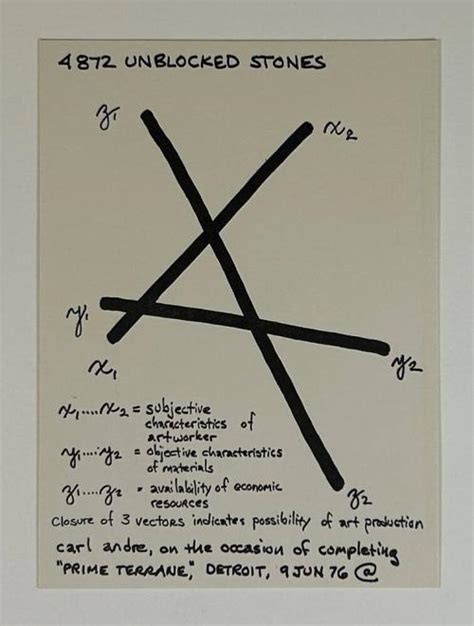 4872 UNBLOCKED STONES
z₁
x₂
y₁
x₁
y₂
x₁....x₂ = subjective
characteristics of
artworker
y₁....y₂ = objective characteristics
of materials
z₁....z₂ = availability of economic
resources
z₂
Closure of 3 vectors indicates possibility of art production
carl andre, on the occasion of completing
"PRIME TERRANE," DETROIT, 9 JUN 76 @